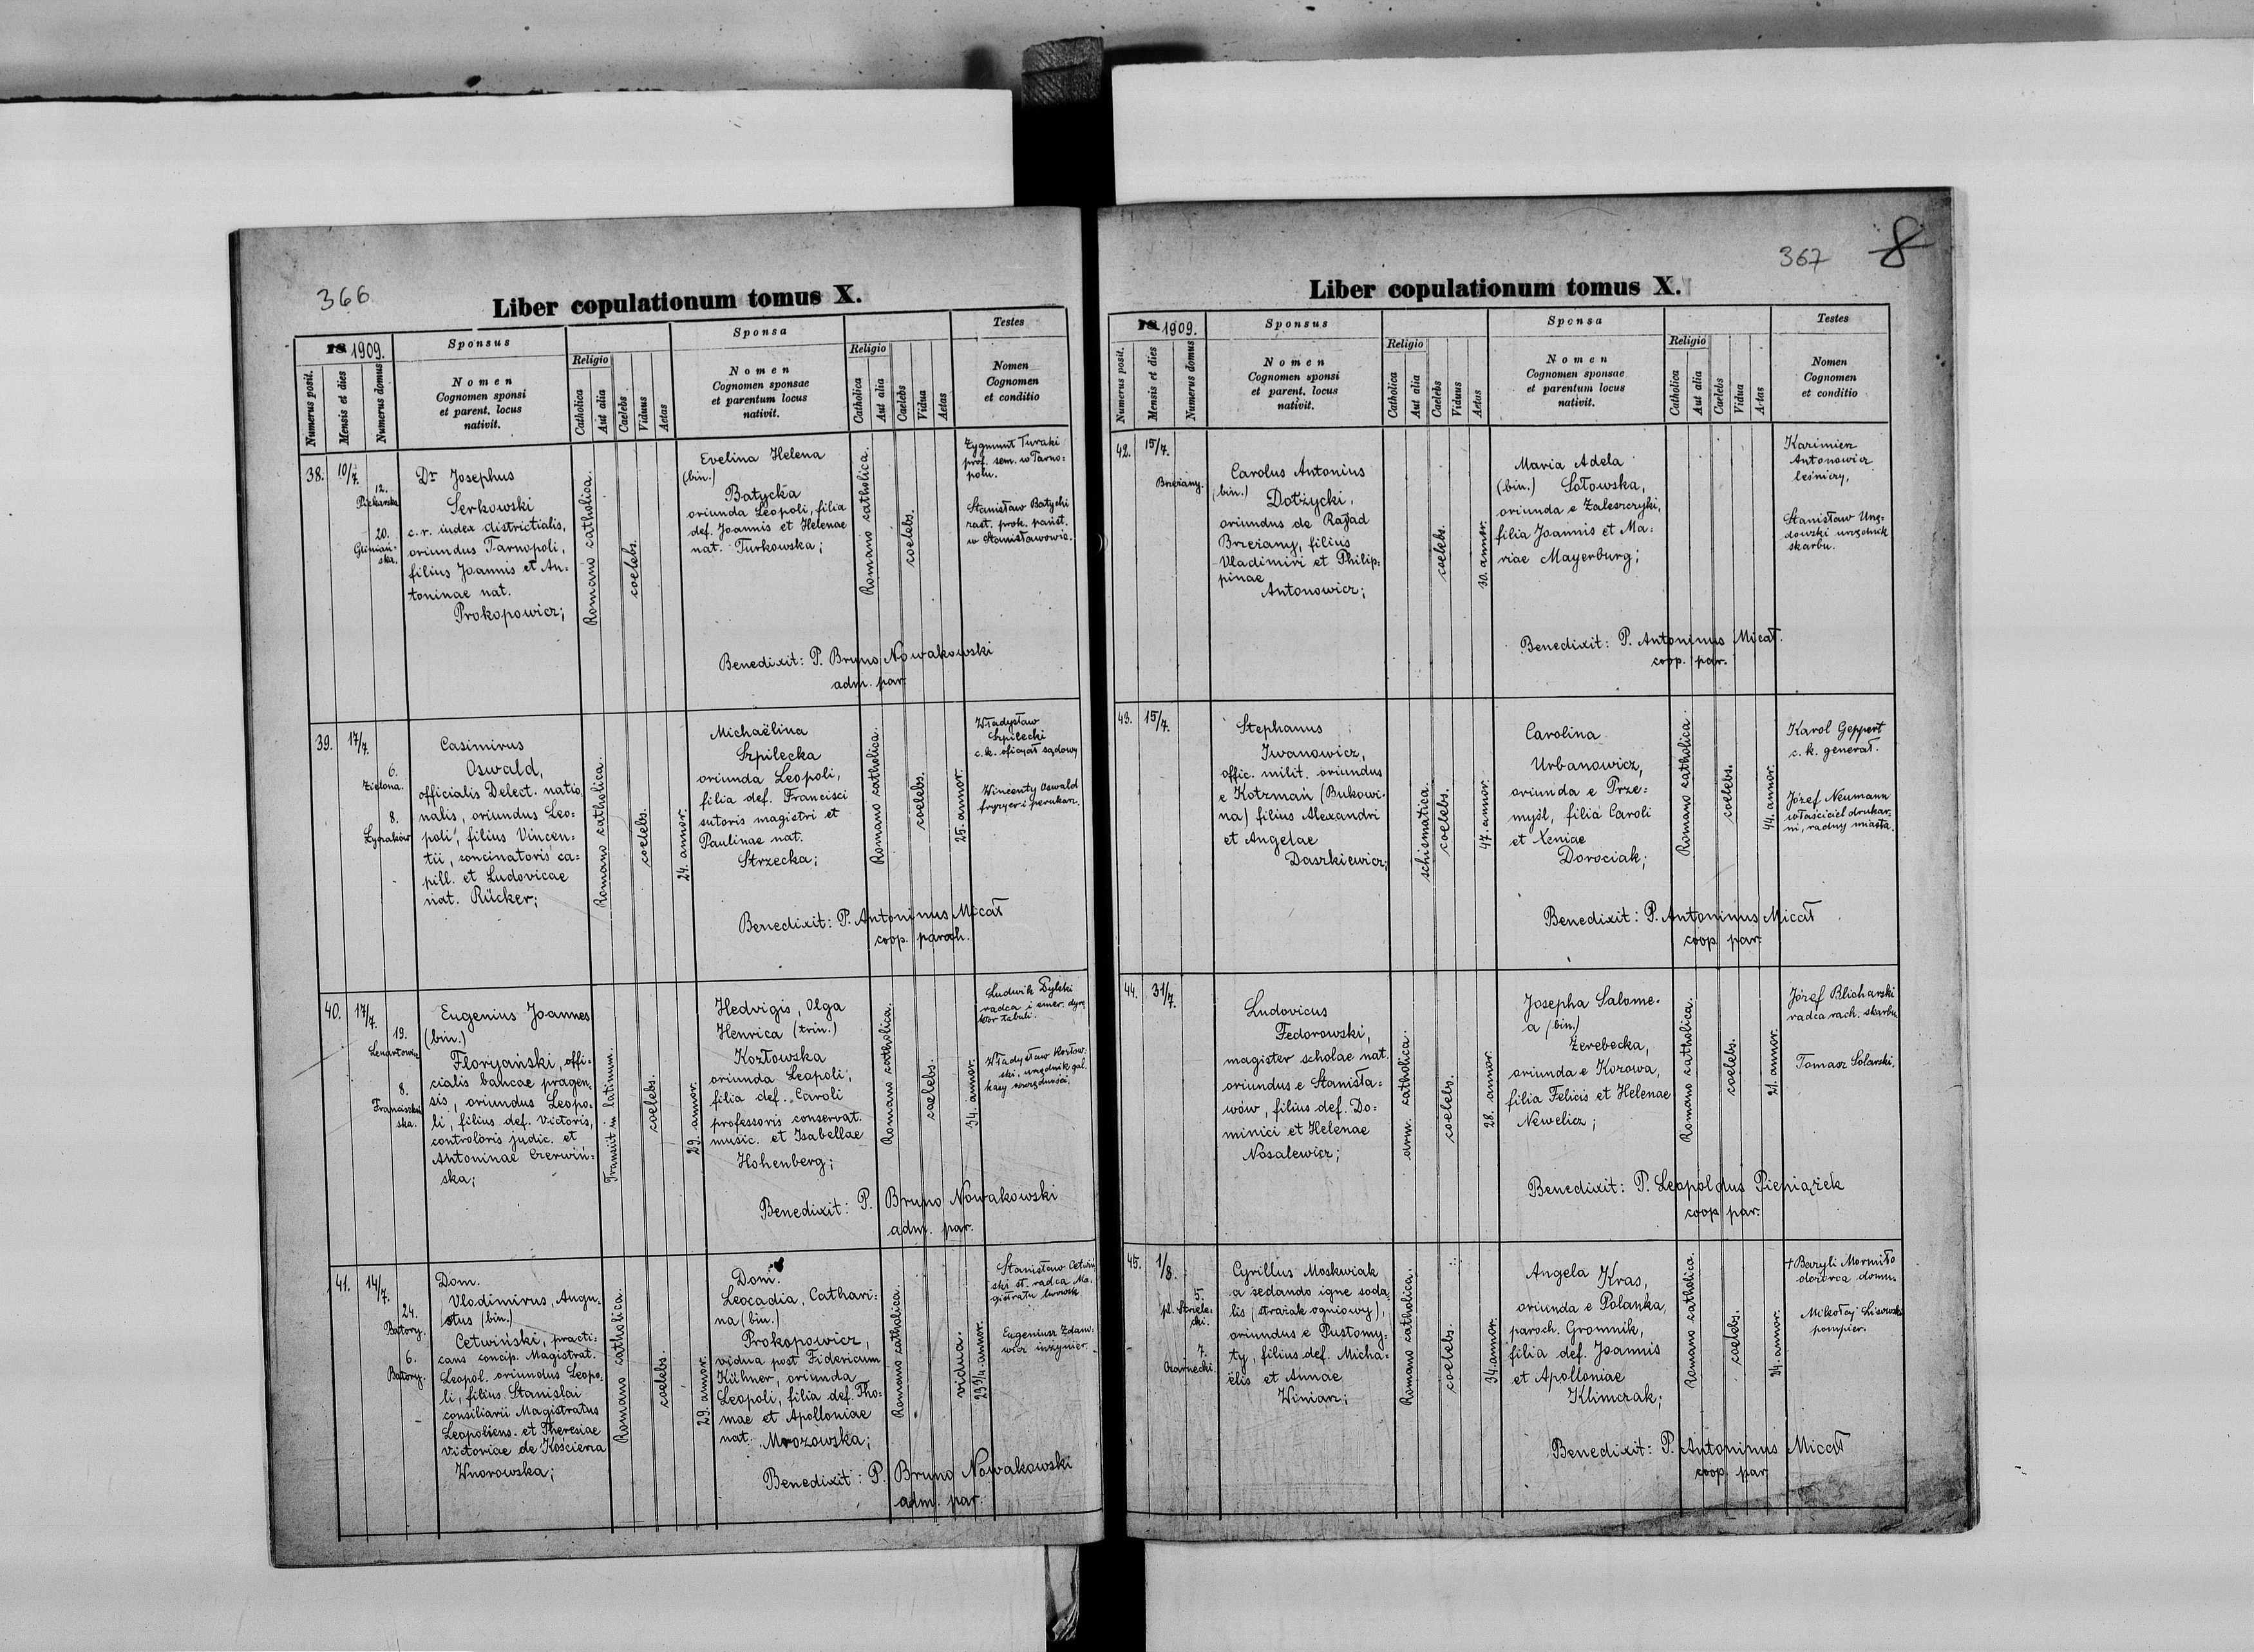 366
Liber copulationum tomus X.
1909.
Numerus posit.
Mensis et dies
Numerus domus
Sponsus
Nomen
Cognomen sponsi
et parent. locus
nativit.
Religio
Catholica
Aut alia
Caelebs
Viduus
Aetas
Sponsa
Nomen
Cognomen sponsae
et parentum locus
nativit.
Religio
Catholica
Aut alia
Caelebs
Vidua
Aetas
Testes
Nomen
Cognomen
et conditio
38.
10/7.
12.
Piekarska
20.
Gliniań-
ska.
Dr Josephus
Serkowski
c. r. iudex districtialis,
oriundus Tarnopoli,
filius Joannis et An-
toninae nat.
Prokopowicz;
Romano catholica.
coelebs.
Evelina Helena
(bin.)
Batycka
oriunda Leopoli, filia
def. Joannis et Helenae
nat. Turkowska;
Romano catholica.
coelebs.
Zygmunt Turski
prof. sem. w Tarno-
polu.
Stanisław Batycki
zast. prok. państ.
w Stanisławowie.
Benedixit: P. Bruno Nowakowski
adm. par.
39.
17/7.
6.
Zielona.
8.
Łyczaków
Casimirus
Oswald,
officialis Delect. natio
nalis, oriundus Leo-
poli, filius Vincen-
tii, concinatoris ca-
pill. et Ludovicae
nat. Rücker;
Romano catholica.
coelebs.
24. annor.
Michaëlina
Szpilecka
oriunda Leopoli,
filia def. Francisci
sutoris magistri et
Paulinae nat.
Strzecka;
Romano catholica.
coelebs.
25. annor.
Władysław
Szpilecki
c. k. oficyał sądowy
Wincenty Oswald
fryzyer i perukar.
Benedixit: P. Antoninus Micał
coop. paroch.
40.
17/7.
19.
Lenartowicz
8.
Franciszkań-
ska.
Eugenius Joannes
(bin.)
Floryański, offi-
cialis bancae pragen-
sis, oriundus Leopo-
li, filius def. Victoris,
controloris judic. et
Antoninae Czerwiń-
ska;
Transiit in latinum.
coelebs.
29. annor.
Hedvigis, Olga
Henrica (trin.)
Kozłowska
oriunda Leopoli,
filia def. Caroli
professoris conservat.
music. et Isabellae
Hohenberg;
Romano catholica.
coelebs.
34. annor.
Ludwik Dylski
radca i emer. dyrę
ktor tabuli.
Władysław Kozłow-
ski, urzędnik gal.
kasy oszczędności.
Benedixit: P. Bruno Nowakowski
adm. par.
41.
14/7.
24.
Batory.
6.
Batory.
Dom.
Vladimirus, Augu-
stus (bin.)
Cetwiński, practi-
cans concip. Magistrat.
Leopol. oriundus Leopo-
li, filius Stanislai
consiliarii Magistratus
Leopoliens. et Theresiae
Victoriae de Kościesza
Wnorowska;
Romano catholica.
coelebs.
29. annor.
Dom.
Leocadia, Cathari-
na (bin.)
Prokopowicz,
vidua post Fidericum
Kühner, oriunda
Leopoli, filia def. Tho-
mae et Apolloniae
nat. Mrozowska;
Romano catholica.
vidua.
29 3/4. annor.
Stanisław Cetwiń
ski st. radca Ma-
gistratu lwowsk
Eugeniusz Zdano-
wicz inżynier.
Benedixit: P. Bruno Nowakowski
adm. par.
367
8
Liber copulationum tomus X.
1909.
Numerus posit.
Mensis et dies
Numerus domus
Sponsus
Nomen
Cognomen sponsi
et parent. locus
nativit.
Religio
Catholica
Aut alia
Caelebs
Viduus
Aetas
Sponsa
Nomen
Cognomen sponsae
et parentum locus
nativit.
Religio
Catholica
Aut alia
Caelebs
Vidua
Aetas
Testes
Nomen
Cognomen
et conditio
42.
15/7.
Brzeżany.
Carolus Antonius
(bin.)
Dołżycki,
oriundus de
Brzeżany, filius
Vladimiri et Philip-
pinae
Antonowicz;
coelebs.
30. annor.
Maria Adela
(bin.) Sołowska,
oriunda e Zaleszczyki,
filia Joannis et Ma-
riae Mayerburg;
Kazimierz
Antonowicz
leśniczy,
Stanisław
urzędnik
skarbu.
Benedixit: P. Antoninus Micał.
coop. par.
43.
15/7.
Stephanus
Iwanowicz,
offic. milit. oriundus
e Kotzmań (Bukowi-
na) filius Alexandri
et Angelae
Daszkiewicz;
schismatica.
coelebs.
47. annor.
Carolina
Urbanowicz,
oriunda e Prze-
myśl, filia Caroli
et Xeniae
Dorociak;
Romano catholica.
coelebs.
44. annor.
Karol Geppert
c. k. generał.
Józef Neumann
właściciel drukar-
ni, radny miasta.
Benedixit: P. Antoninus Micał
coop. par.
44.
31/7.
Ludovicus
Fedorowski,
magister scholae nat.
oriundus e Stanisła-
wów, filius def. Do-
minici et Helenae
Nosalewicz;
arm. catholica.
coelebs.
28. annor.
Josepha Salome-
a (bin.)
Zerebecka,
oriunda e Kozowa,
filia Felicis et Helenae
Newelicz;
Romano catholica.
coelebs.
21. annor.
Józef Blicharski
radca rach. skarbu
Tomasz Solarski,
Benedixit: P. Leopoldus Pieniążek
coop. par.
45.
1/8.
5.
pl. Strzele-
cki.
7.
Czarnecki.
Cyrillus Moskwiak
a sedando igne soda-
lis (strażak ogniowy),
oriundus e Pustomy-
ty, filius def. Micha-
ëlis et Annae
Winiarz;
Romano catholica.
coelebs.
34. annor.
Angela Kras,
oriunda e Polanka,
paroch. Gromnik,
filia def. Joannis
et Apolloniae
Klimczak;
Romano catholica.
coelebs.
24. annor.
+ Bazyli Mormiło
dozorca domu.
Mikołaj Lisowski
pompier.
Benedixit: P. Antoninus Micał
coop. par.